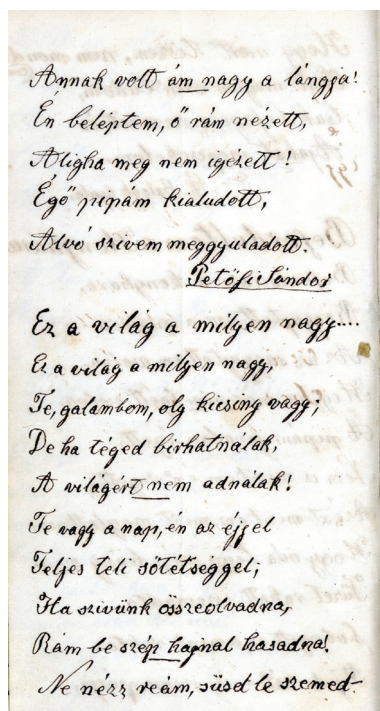 Annak volt ám nagy a lángja!
Én beléptem, ő rám nézett,
Aligha meg nem igézett!
Égő pipám kialudott,
Alvó szivem meggyuladott.
Petőfi Sándor
Ez a világ a milyen nagy....
Ez a világ a milyen nagy,
Te, galambom, oly kicsiny vagy;
De ha téged birhatnálak,
A világért nem adnálak!
Te vagy a nap, én az éjjel
Teljes teli sötétséggel;
Ha szivünk összeolvadna,
Rám be szép hajnal hasadna!
Ne nézz reám, süset le szemed-